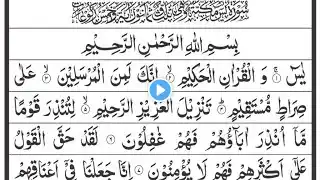 بِسْمِ اللهِ الرَّحْمٰنِ الرَّحِيْمِ
يٰسٓ ۚ وَالْقُرْاٰنِ الْحَكِيْمِ ۙ اِنَّكَ لَمِنَ الْمُرْسَلِيْنَ ۙ عَلٰى
صِرَاطٍ مُّسْتَقِيْمٍ ؕ تَنْزِيْلَ الْعَزِيْزِ الرَّحِيْمِ ۙ لِتُنْذِرَ قَوْمًا
مَّاۤ اُنْذِرَ اٰبَآؤُهُمْ فَهُمْ غٰفِلُوْنَ ۶ لَقَدْ حَقَّ الْقَوْلُ
عَلٰۤى اَكْثَرِهِمْ فَهُمْ لَا يُؤْمِنُوْنَ ۷ اِنَّا جَعَلْنَا فِيْۤ اَعْنَاقِهِمْ